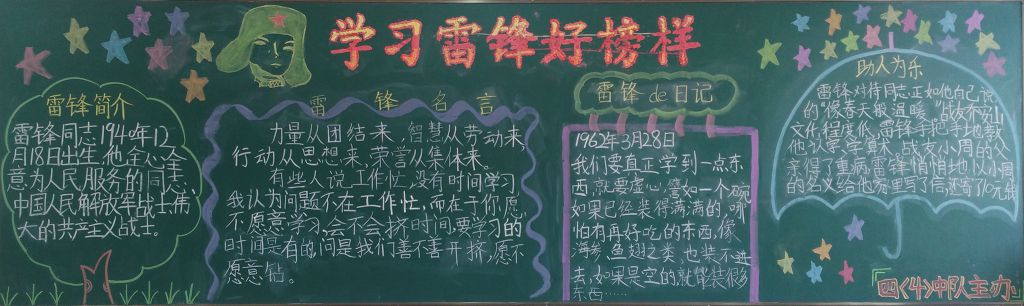 学习雷锋好榜样
雷锋简介
雷锋同志1940年12
月18日出生,他全心全
意为人民服务的同志、
中国人民解放军战士、伟
大的共产主义战士。
雷锋名言
力量从团结来,智慧从劳动来,
行动从思想来,荣誉从集体来。
有些人说工作忙,没有时间学习,
我认为问题不在工作忙,而在于你愿
不愿意学习,会不会挤时间,要学习的
时间是有的,问是我们善不善开挤,愿不
愿意钻。
雷锋de日记
1962年3月28日
我们要真正学到一点东
西,就要虚心,譬如一个碗,
如果已经装得满满的,哪
怕有再好吃的东西,像
海参、鱼翅之类,也装不进
去,如果是空的,就能装很多
东西……
助人为乐
雷锋对待同志正如他自己说
的“像春天般温暖。”战友乔安山
文化程度低,雷锋手把手地教
他认字、学算术,战友小周的父
亲得了重病,雷锋悄悄地以小周
的名义给他家里写了信,还寄了10元钱
四〈4〉中队主办